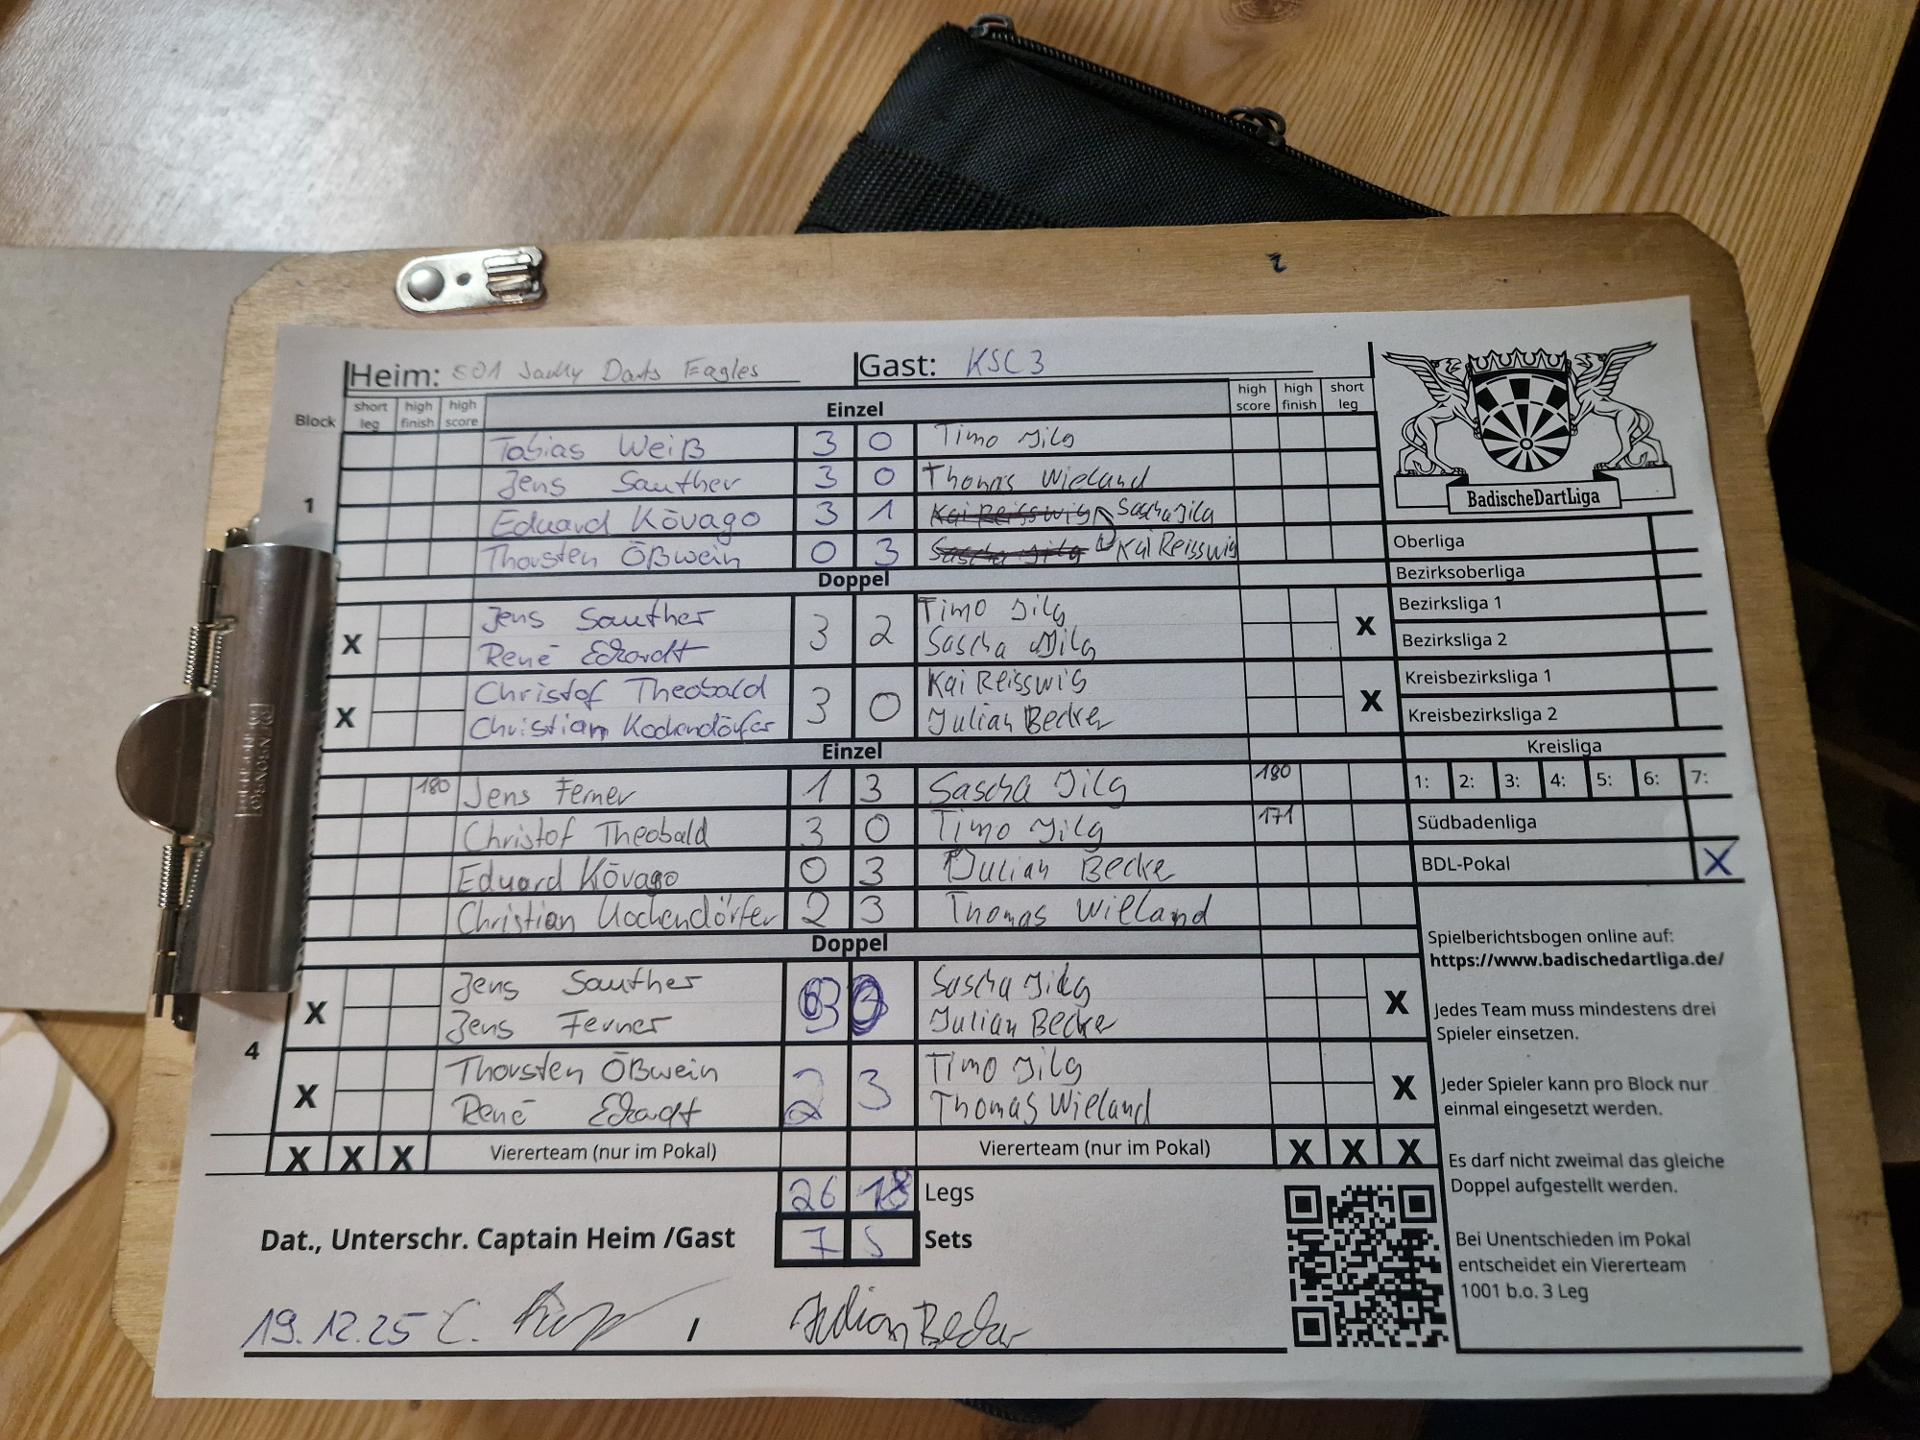 Heim: 501 Darts Eagles Gast: KSC3
Block short leg high finish high score Einzel high score high finish short leg
Tobias Weiß 3 0 Timo Jilg
Jens Sauther 3 0 Thomas Wieland
1 Eduard Kövago 3 1 Kai Reisswig Sascha Jilg
Thorsten Ößwein 0 3 Sascha Jilg Kai Reisswig
Doppel
Jens Sauther Timo Jilg
X 3 2 X
René Eckardt Sascha Jilg
Christof Theobald Kai Reisswig
X 3 0 X
Christian Kochendörfer Julian Becker
Einzel
180 Jens Ferner 1 3 Sascha Jilg 180
Christof Theobald 3 0 Timo Jilg 171
Eduard Kövago 0 3 Julian Becke
Christian Kochendörfer 2 3 Thomas Wieland
Doppel
Jens Sauther Sascha Jilg
X X
Jens Ferner Julian Becke
4
Thorsten Ößwein Timo Jilg
X 2 3 X
René Eckardt Thomas Wieland
X X X Viererteam (nur im Pokal) Viererteam (nur im Pokal) X X X
26 18 Legs
Dat., Unterschr. Captain Heim /Gast 7 5 Sets
19.12.25 C. / Julian Becker
BadischeDartLiga
Oberliga
Bezirksoberliga
Bezirksliga 1
Bezirksliga 2
Kreisbezirksliga 1
Kreisbezirksliga 2
Kreisliga
1: 2: 3: 4: 5: 6: 7:
Südbadenliga
BDL-Pokal X
Spielberichtsbogen online auf:
https://www.badischedartliga.de/
Jedes Team muss mindestens drei
Spieler einsetzen.
Jeder Spieler kann pro Block nur
einmal eingesetzt werden.
Es darf nicht zweimal das gleiche
Doppel aufgestellt werden.
Bei Unentschieden im Pokal
entscheidet ein Viererteam
1001 b.o. 3 Leg